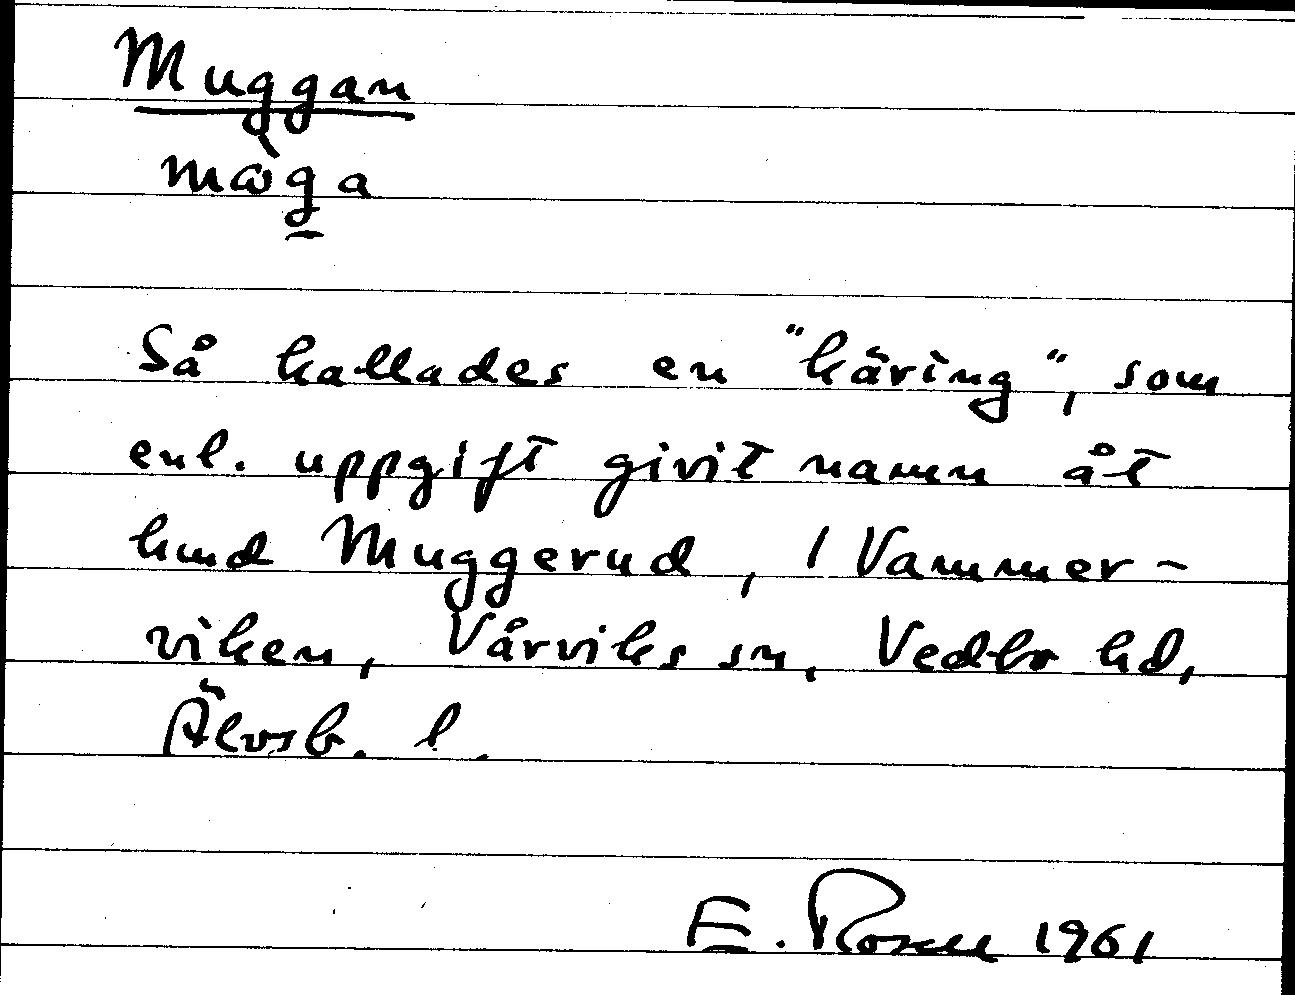 Muggan
mωg̠̀a
Så kallades en "käring", som
enl. uppgift givit namn åt
hmd Muggerud, / Vammer-
viken, Vårviks sn, Vedbo hd,
Älvsb. l.
E. Rosell 1961